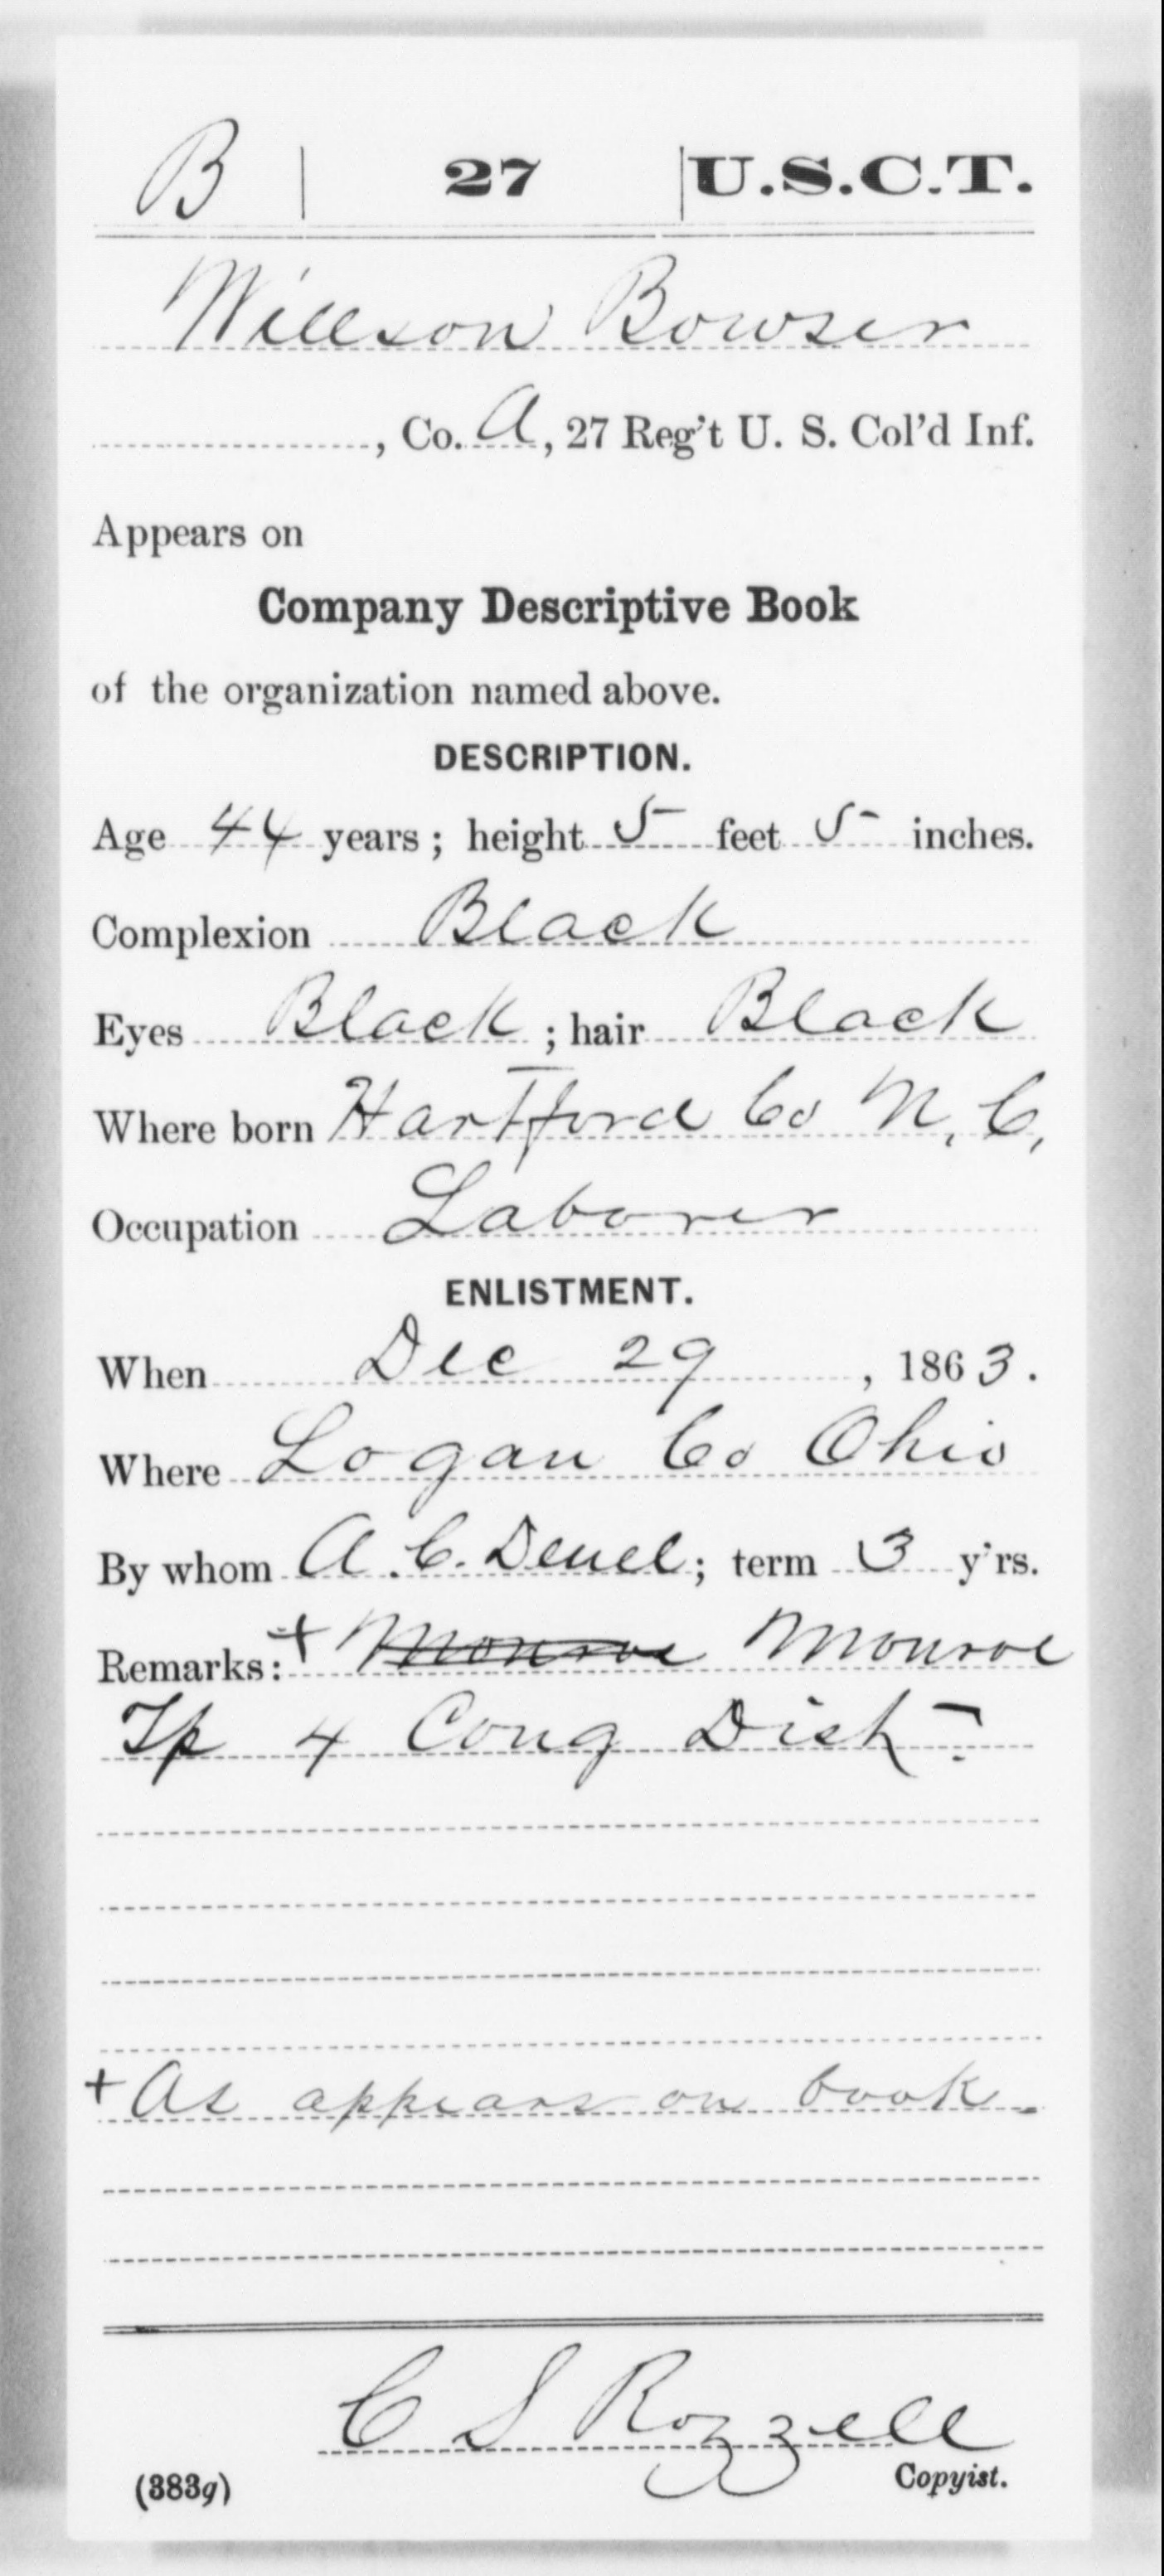 B | 27 | U.S.C.T.
Willson Bowser
, Co. A, 27 Reg't U. S. Col'd Inf.
Appears on
Company Descriptive Book
of the organization named above.
DESCRIPTION.
Age 44 years; height 5 feet 5 inches.
Complexion Black
Eyes Black; hair Black
Where born Hartford Co N. C.
Occupation Laborer
ENLISTMENT.
When Dec 29, 1863.
Where Logan Co Ohio
By whom A. C. Deuel; term 3 y'rs.
Remarks: + Monroe Monroe
Tp 4 Cong Dist
+ As appears on book.
C S Rozzell
Copyist.
(383g)